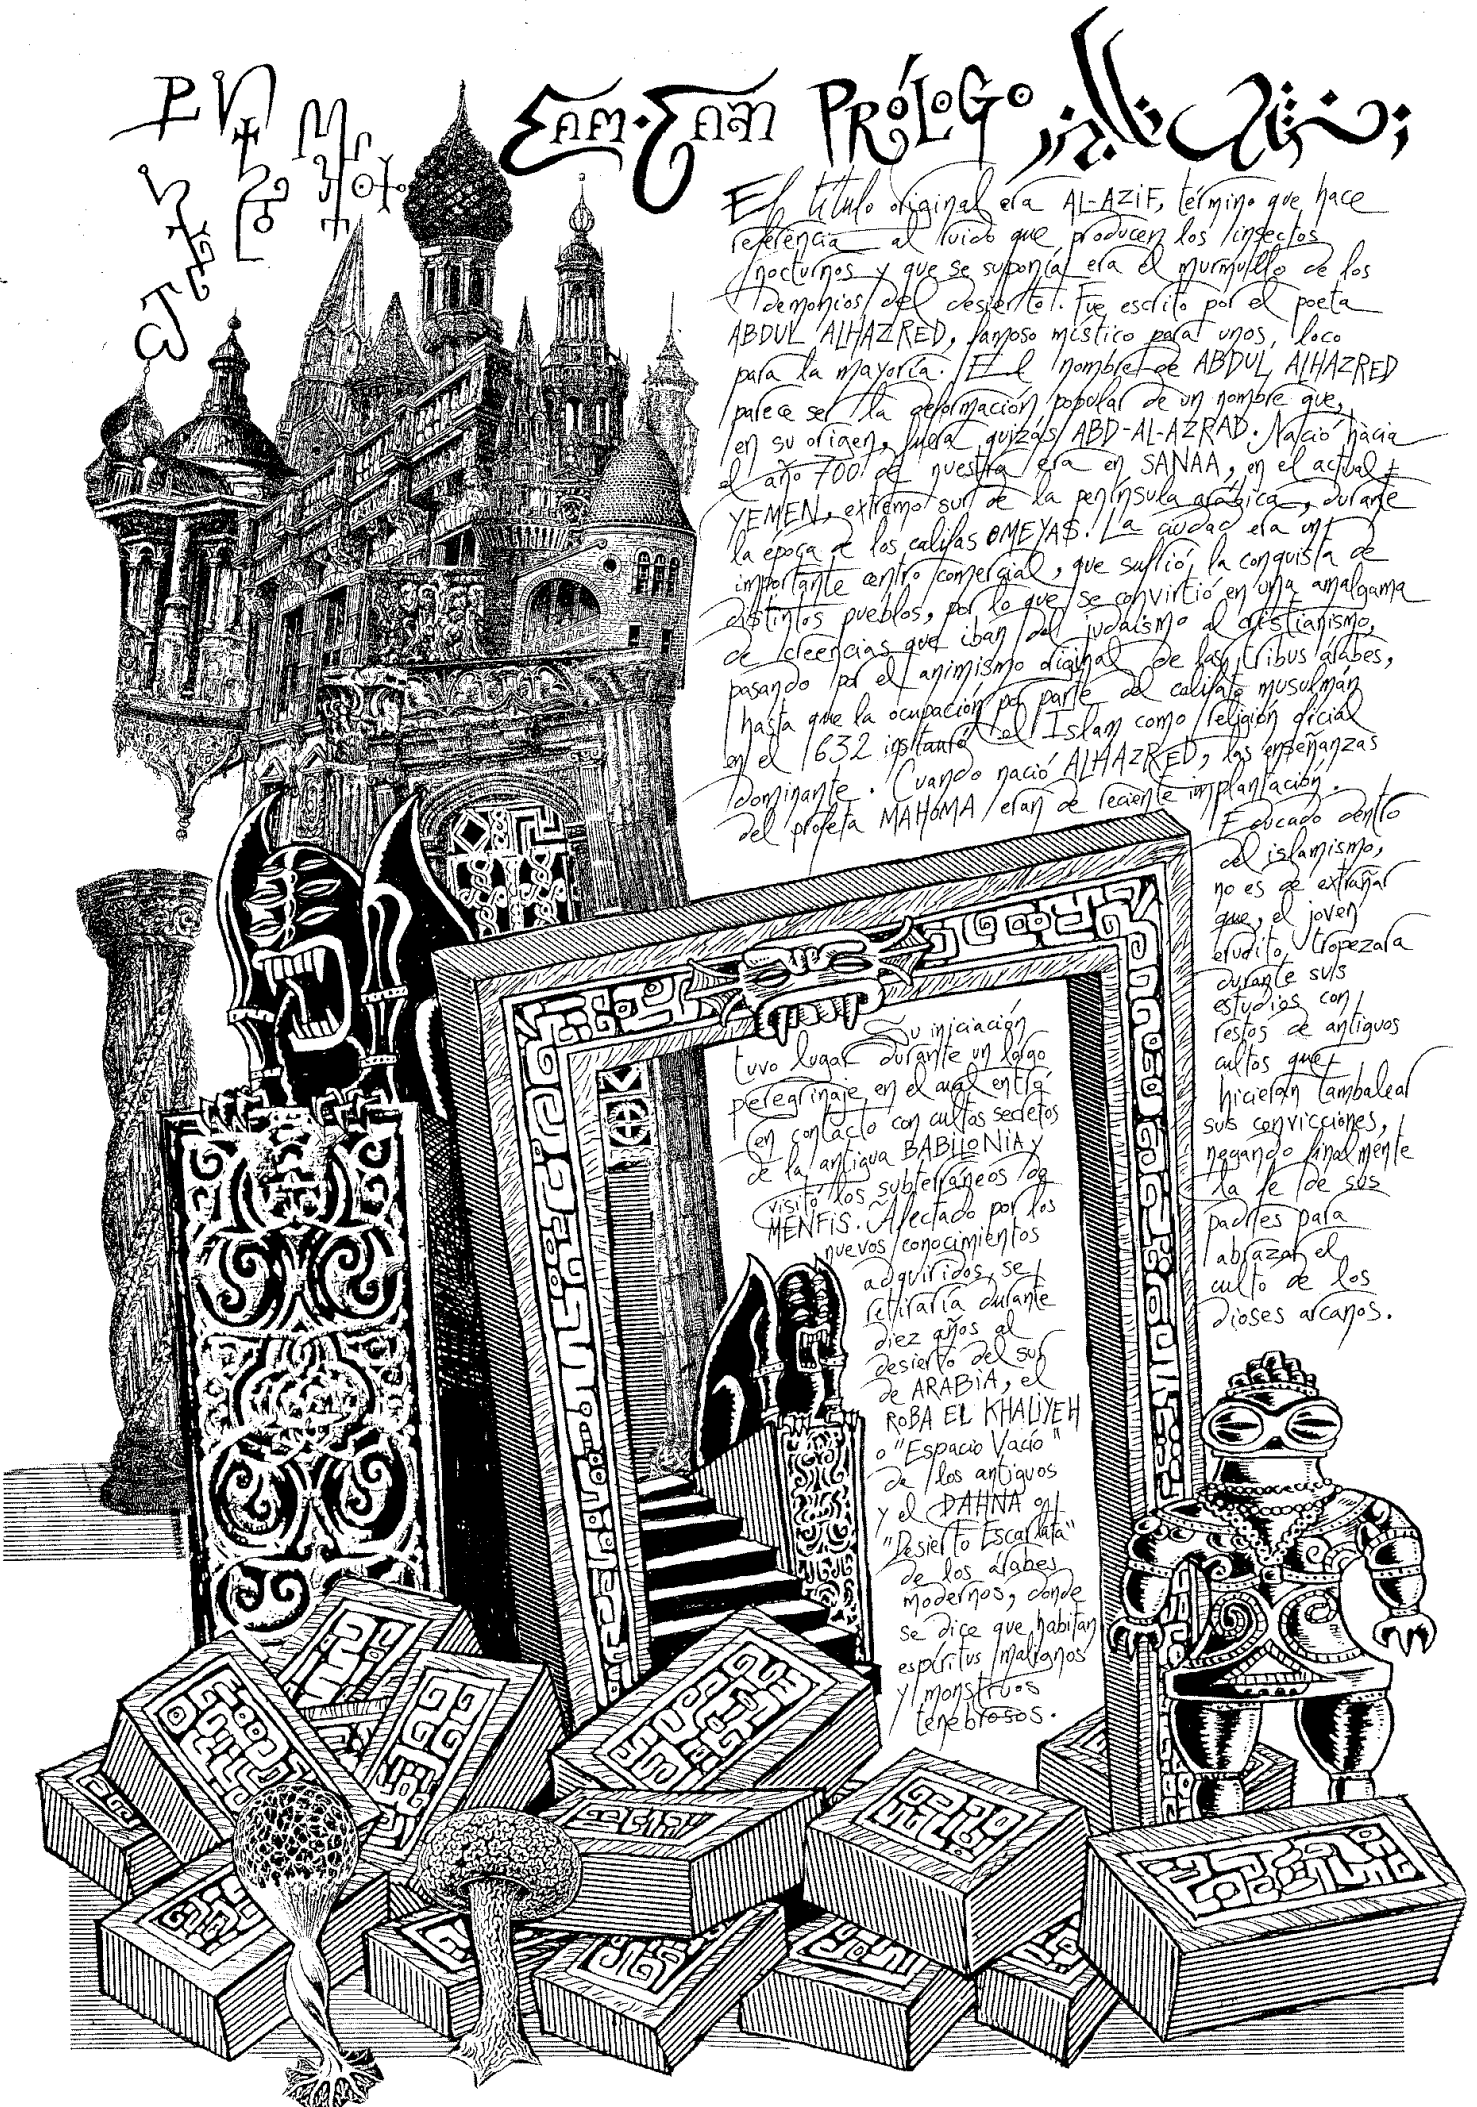 PRÓLOGO
El título original era AL-AZIF, término que hace
referencia al ruido que producen los insectos
nocturnos y que se suponía era el murmullo de los
demonios del desierto. Fue escrito por el poeta
ABDUL ALHAZRED, famoso místico para unos, loco
para la mayoría. El nombre de ABDUL ALHAZRED
parece ser la deformación popular de un nombre que,
en su origen, fuera quizás ABD-AL-AZRAD. Nació hacia
el año 700 de nuestra era en SANAA, en el actual
YEMEN, extremo sur de la península arábica, durante
la época de los califas OMEYAS. La ciudad era un
importante centro comercial, que sufrió la conquista de
distintos pueblos, por lo que se convirtió en una amalgama
de creencias que iban del judaísmo al cristianismo,
pasando por el animismo original de las tribus árabes,
hasta que la ocupación por parte del califato musulmán
en el 632 instauró el Islam como religión oficial
dominante. Cuando nació ALHAZRED, las enseñanzas
del profeta MAHOMA eran de reciente implantación.
Educado dentro
del islamismo,
no es de extrañar
que, el joven
erudito, tropezara
durante sus
estudios con
restos de antiguos
cultos que
hicieran tambalear
sus convicciones,
negando finalmente
la fe de sus
padres para
abrazar el
culto de los
dioses arcanos.
Su iniciación
tuvo lugar durante un largo
peregrinaje en el cual entró
en contacto con cultos secretos
de la antigua BABILONIA y
visitó los subterráneos de
MENFIS. Afectado por los
nuevos conocimientos
adquiridos, se
retiraría durante
diez años al
desierto del sur
de ARABIA, el
ROBA EL KHALIYEH
o "Espacio Vacío"
de los antiguos
y el DAHNA o
"Desierto Escarlata"
de los árabes
modernos, donde
se dice que habitan
espíritus malignos
y monstruos
tenebrosos.